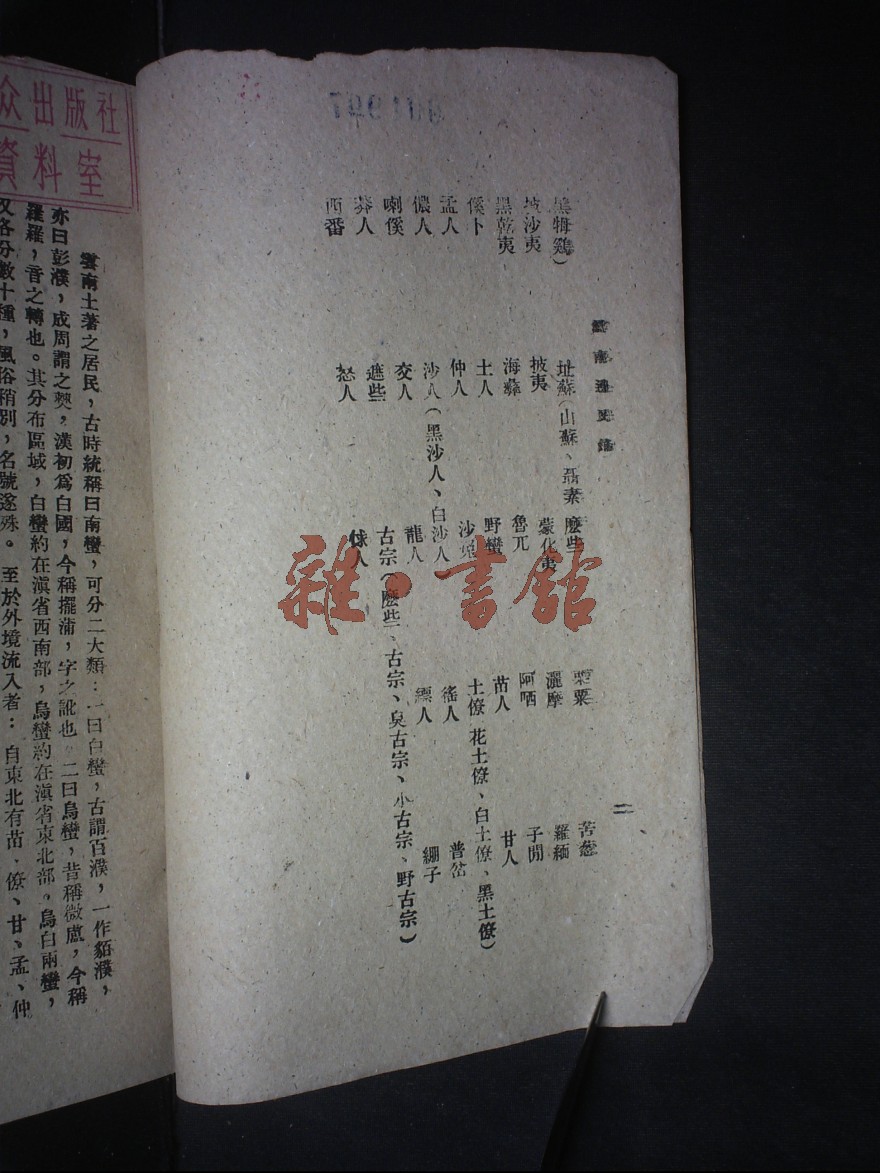 雲南邊民錄
二
黑犄鷄）
址蘇（山蘇、聶素
麽些
栗粟
苦葱
坡沙夷
披夷
蒙化夷
灑摩
羅緬
黑乾夷
海彝
魯兀
阿哂
子閒
傒卜
土人
野蠻
苗人
甘人
孟人
仲人
沙
土僚 花土僚、白土僚、黑土僚）
儂人
沙人（黑沙人、白沙人
徭人
普岔
喇傒
交人
龍人
縹人
繃子
莽人
遮些
古宗（麽些、古宗、臭古宗、小古宗、野古宗）
西番
怒人
俅人
雜·書館
众出版社
資料室
雲南土著之居民，古時統稱曰南蠻，可分二大類：一曰白蠻，古謂百濮，一作貊濮，
亦曰彭濮，成周謂之僰，漢初爲白國，今稱擺蒲，字之訛也。二曰烏蠻，昔稱微盧，今稱
羅羅，音之轉也。其分布區域，白蠻約在滇省西南部，烏蠻約在滇省東北部。烏白兩蠻，
又各分數十種，風俗稍別，名號遂殊。至於外境流入者：自東北有苗、僚、甘、孟、仲